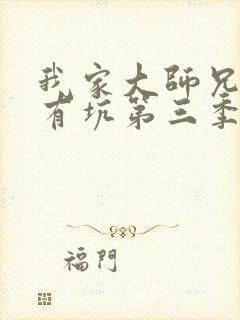 我家大师兄
有坑第三季
福門